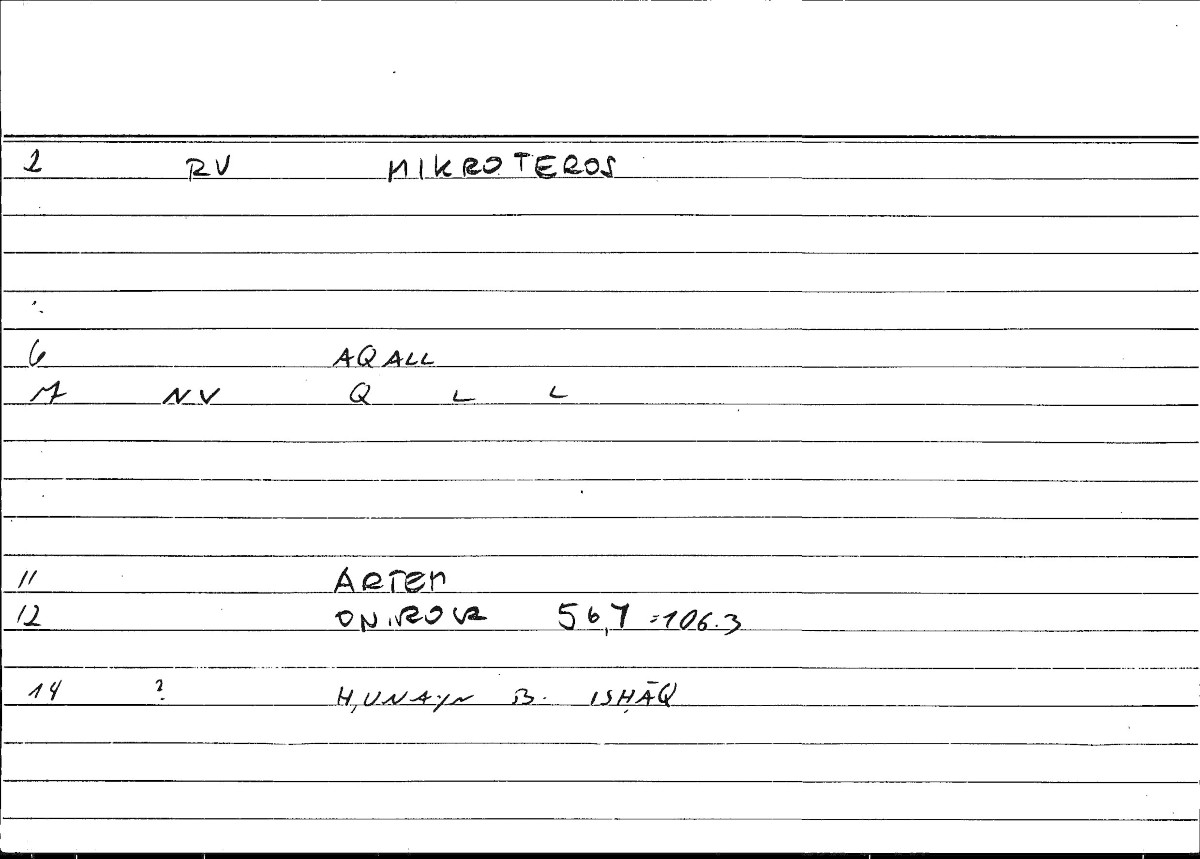 2 RV MIKROTEROS
6 AQALL
7 NV Q L L
11 ARTEM
12 ONIROKR 56,7 =106.3
14 ? ḤUNAYN B. ISḤĀQ